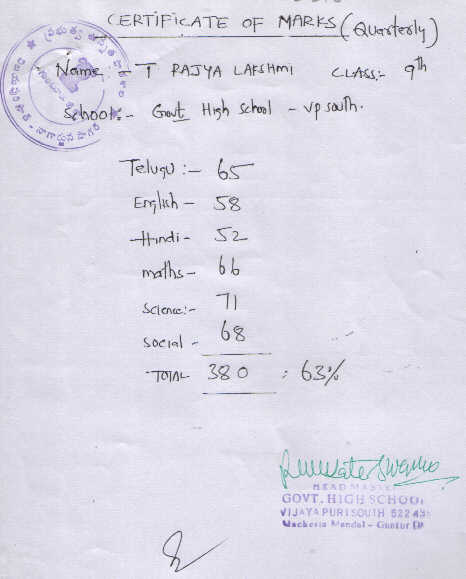 CERTIFICATE OF MARKS (Quarterly)
Name :- T RAJYA LAKSHMI CLASS:- 9th
School:- Govt High School - vp south.
Telugu :- 65
English - 58
Hindi - 52
maths - 66
Science:- 71
social - 68
TOTAL 380 : 63%
HEAD MASTER
GOVT. HIGH SCHOOL
VIJAYAPURI SOUTH 522 43
Macherla Mandal - Guntur Dt